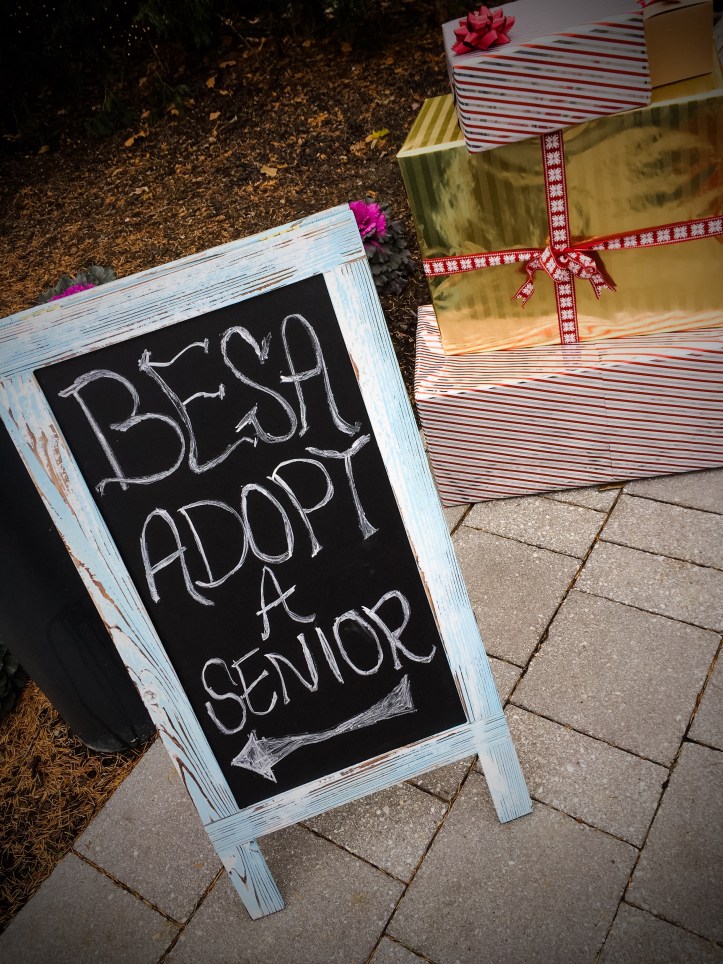 BESA
ADOPT
A
SENIOR